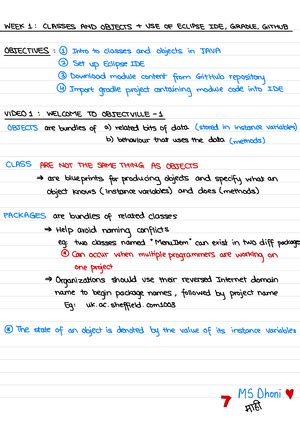 WEEK 1 : CLASSES AND OBJECTS + USE OF ECLIPSE IDE, GRADLE, GITHUB
OBJECTIVES : ① Intro to classes and objects in JAVA
② Set up Eclipse IDE
③ Download module content from GitHub repository
④ Import gradle project containing module code into IDE
VIDEO 1 : WELCOME TO OBJECTVILLE - 1
OBJECTS are bundles of a) related bits of data (stored in instance variables)
b) behaviour that uses the data (methods)
CLASS ARE NOT THE SAME THING AS OBJECTS
→ are blueprints for producing objects and specify what an
object knows (instance variables) and does (methods)
PACKAGES are bundles of related classes
→ Help avoid naming conflicts
eg: two classes named "MenuItem" can exist in two diff packages
* Can occur when multiple programmers are working on
one project
→ Organizations should use their reversed Internet domain
name to begin package names, followed by project name
Eg: uk.ac.sheffield.com1003
* The state of an object is denoted by the value of its instance variables
7 MS Dhoni ♥
माही